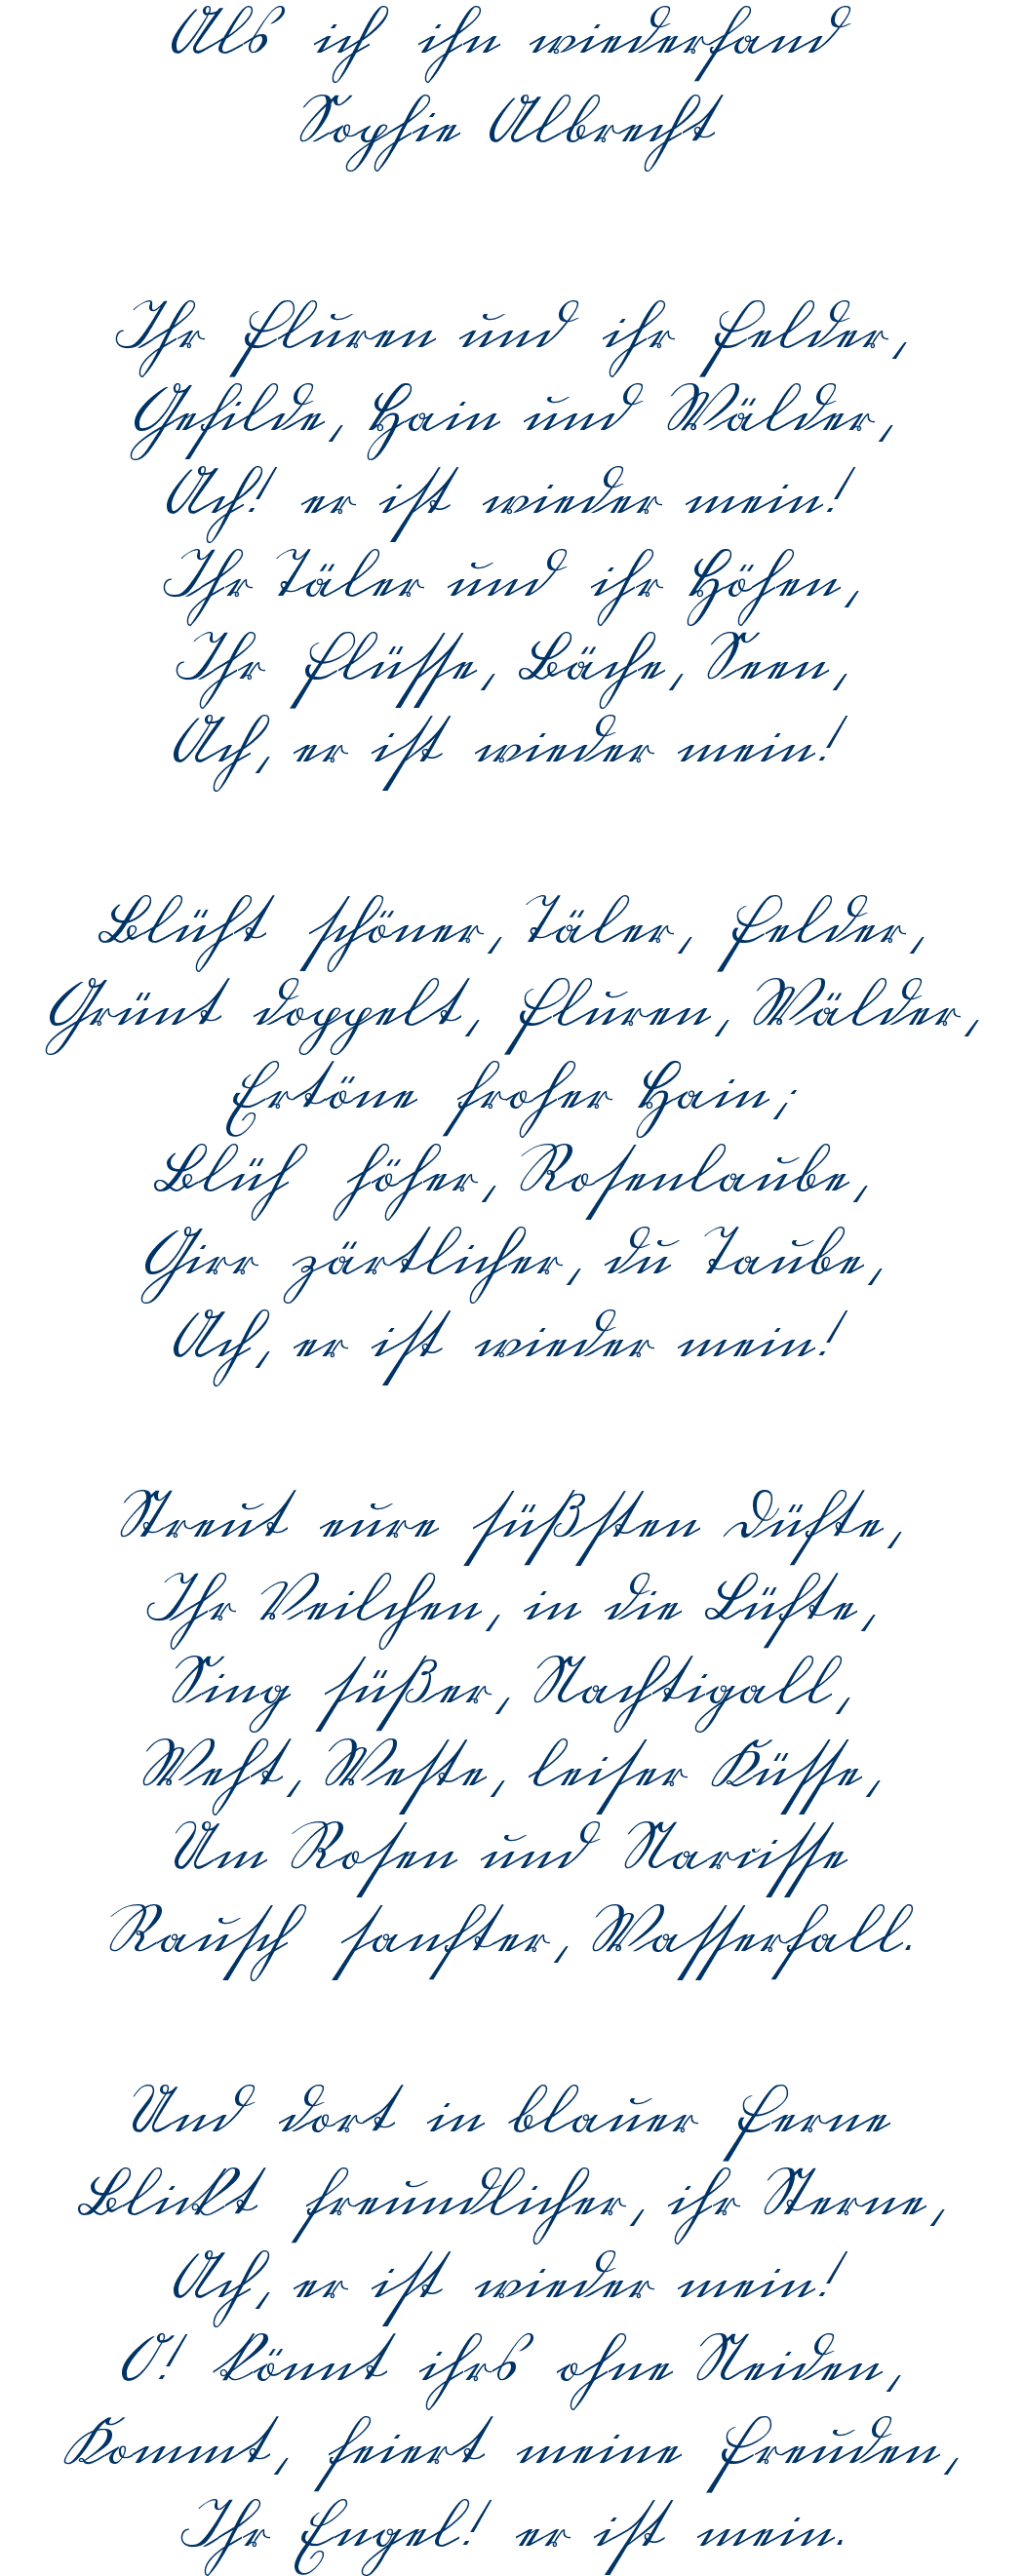 Als ich ihn wiederfand
Sophie Albrecht
Ihr Fluren und ihr Felder,
Gefilde, Hain und Wälder,
Ach! er ist wieder mein!
Ihr Täler und ihr Höhen,
Ihr Flüsse, Bäche, Seen,
Ach, er ist wieder mein!
Blüht schöner, Täler, Felder,
Grünt doppelt, Fluren, Wälder,
Ertöne froher Hain;
Blüh höher, Rosenlaube,
Girr zärtlicher, du Taube,
Ach, er ist wieder mein!
Streut eure süßsten Düfte,
Ihr Veilchen, in die Lüfte,
Sing süßer, Nachtigall,
Weht, Weste, leiser Küsse,
Um Rosen und Narcisse
Rausch sanfter, Wasserfall.
Und dort in blauer Ferne
Blickt freundlicher, ihr Sterne,
Ach, er ist wieder mein!
O! könnt ihrs ohne Neiden,
Kommt, feiert meine Freuden,
Ihr Engel! er ist mein.